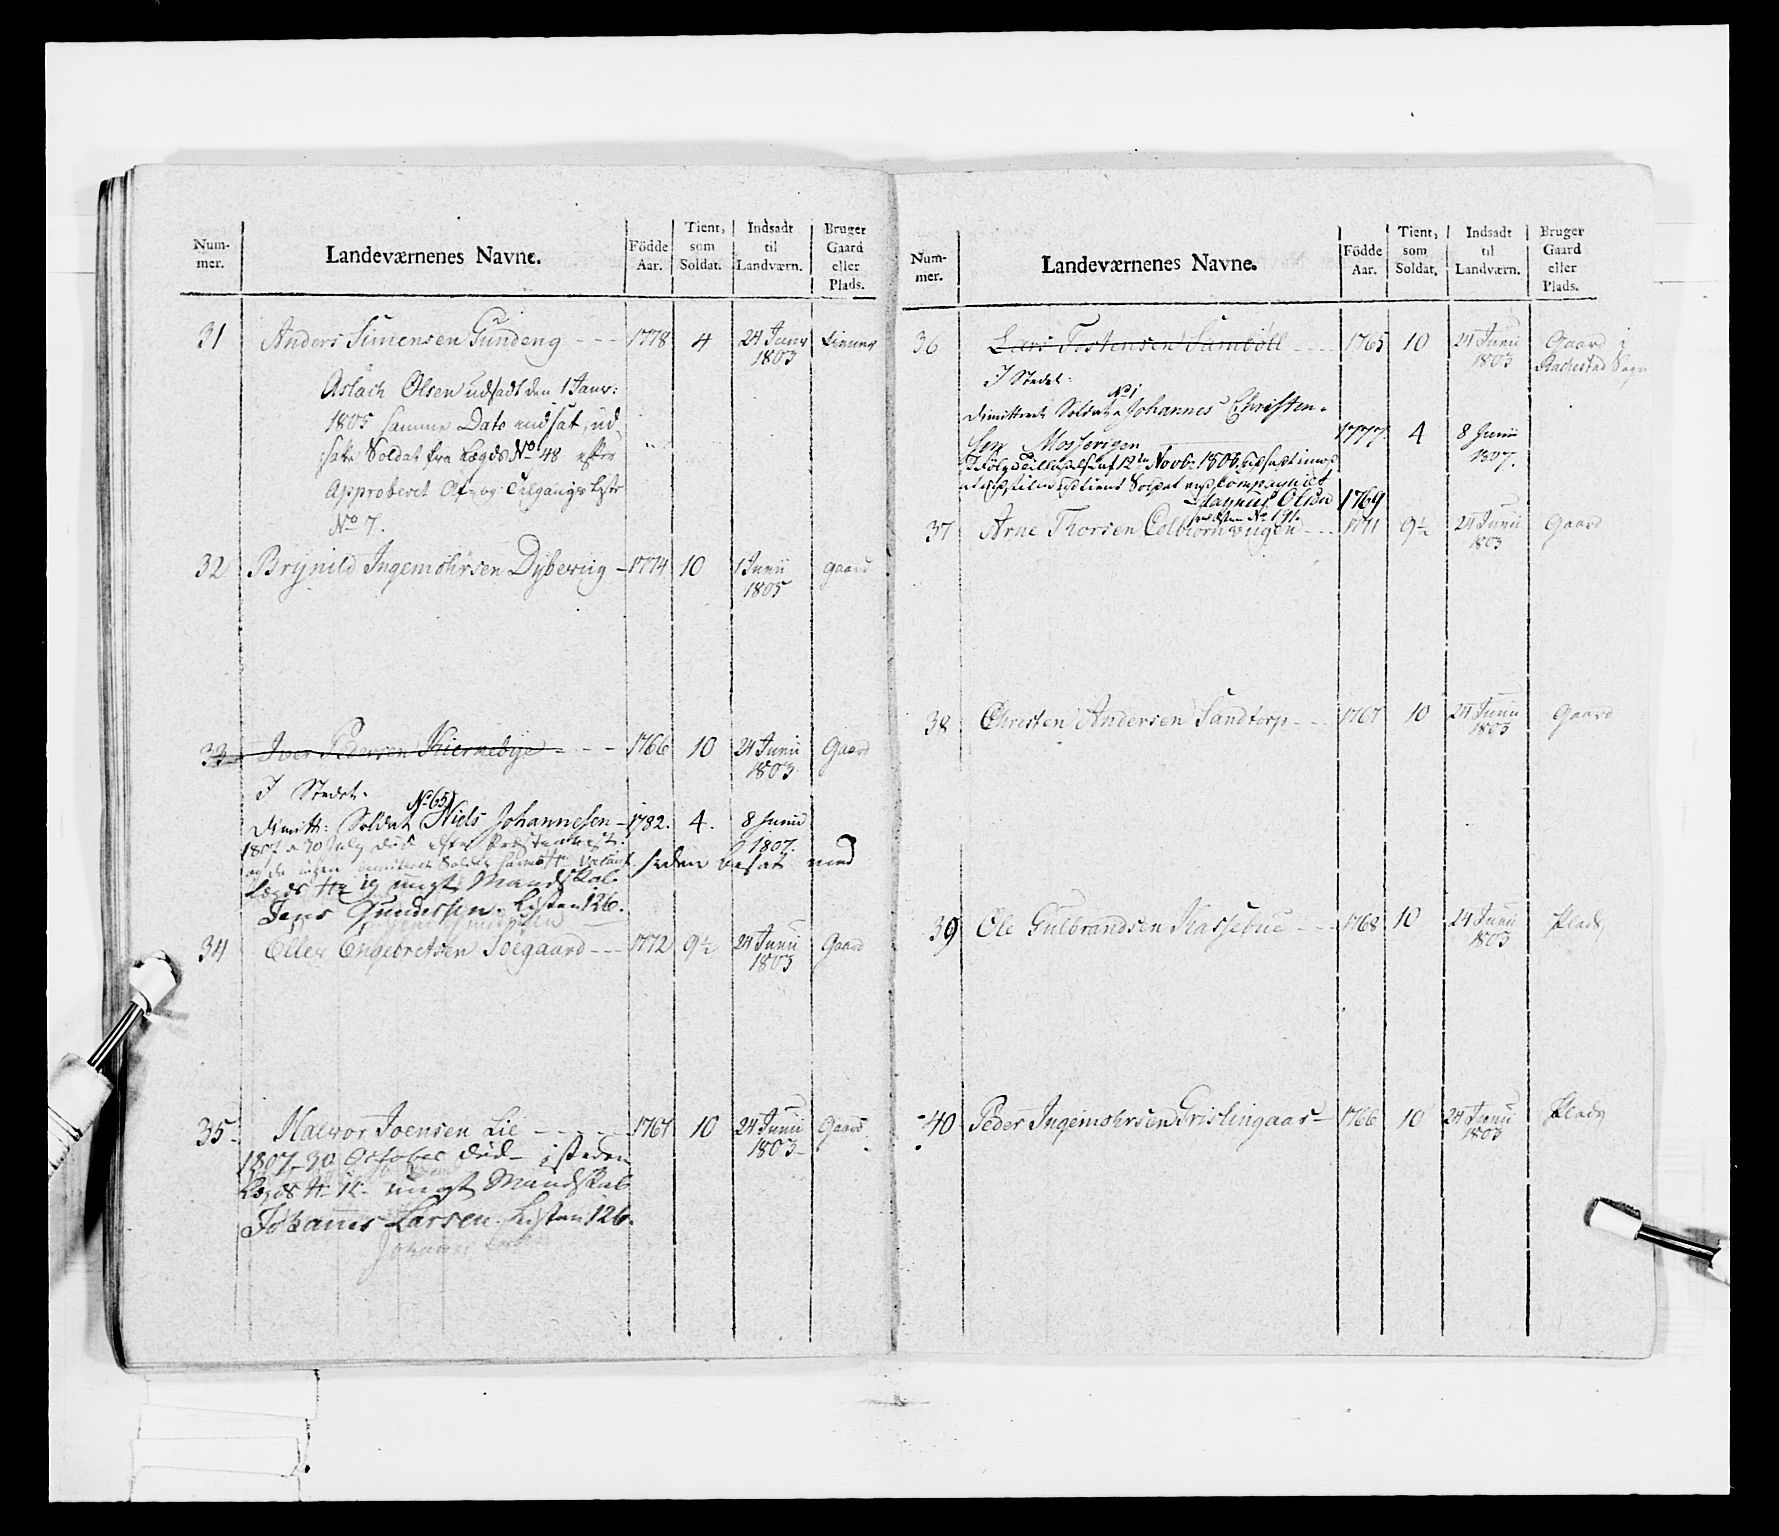 Num-
mer.
Landeværnenes Navne.
Födde
Aar.
Tient,
som
Soldat.
Indsadt
til
Landværn.
Bruger
Gaard
eller
Plads.
31 Anders Simensen Gundeng - - - 1778 4 24 Janr
1803
Aslach Olsen udsadt den 1 Janr:
1805 samme Dato indsat, ud-
Soldat fra Lægds No 48 efter
Approberet Af- og Tilgangs Liste
No 7.
32 Brynild Ingemohrsen Dybevig - 1774 10 1 Junii Gaard
1805
33 Iver Pedersen Kiernebye - - - 1766 10 24 Junii Gaard
1803
I Stedet:
No 65
Dimitt: Soldat Niels Johannesen - 1782. 4. 8 Junii
1807.
1807 30 July død
ungt Mandskab. siden besat med
Jens Gundersen. Listen 126.
34 Elles Engebretsen Soegaard - - - 1772 9½ 24 Junii Gaard
1803
35 Halvor Joensen Lie - - - 1767 10 24 Junii Gaard
1803
1807 - 30 October død - i steden
Lægds ungt Mandskab
Johannes Larsen. Listen 126.
Johannes Larsen
Num-
mer.
Landeværnenes Navne.
Födde
Aar.
Tient,
som
Soldat.
Indsadt
til
Landværn.
Bruger
Gaard
eller
Plads.
36 Lars Tostensen Sambøll - - - 1765 10 24 Junii Gaard i
1803 Rachestad Sogn
I Stedet:
No 1
Dimitteret Soldat Johannes Christen-
sen 1777 4 8 Junii
1807.
12te Novbr 1808
Soldat ved Compagniet
Magnus Olsen 1769
Listen No 191.
37 Arne Thorsen Colbiørnsvigen - - 1771 9½ 24 Junii Gaard
1803
38 Christen Andersen Sandtorp - - - 1767 10 24 Junii Gaard
1803
39 Ole Gulbrandsen Kassebue - - - 1768 10 24 Junii Plads
1803
40 Peder Ingemohrsen Grislingaas - 1766 10 24 Junii Plads
1803